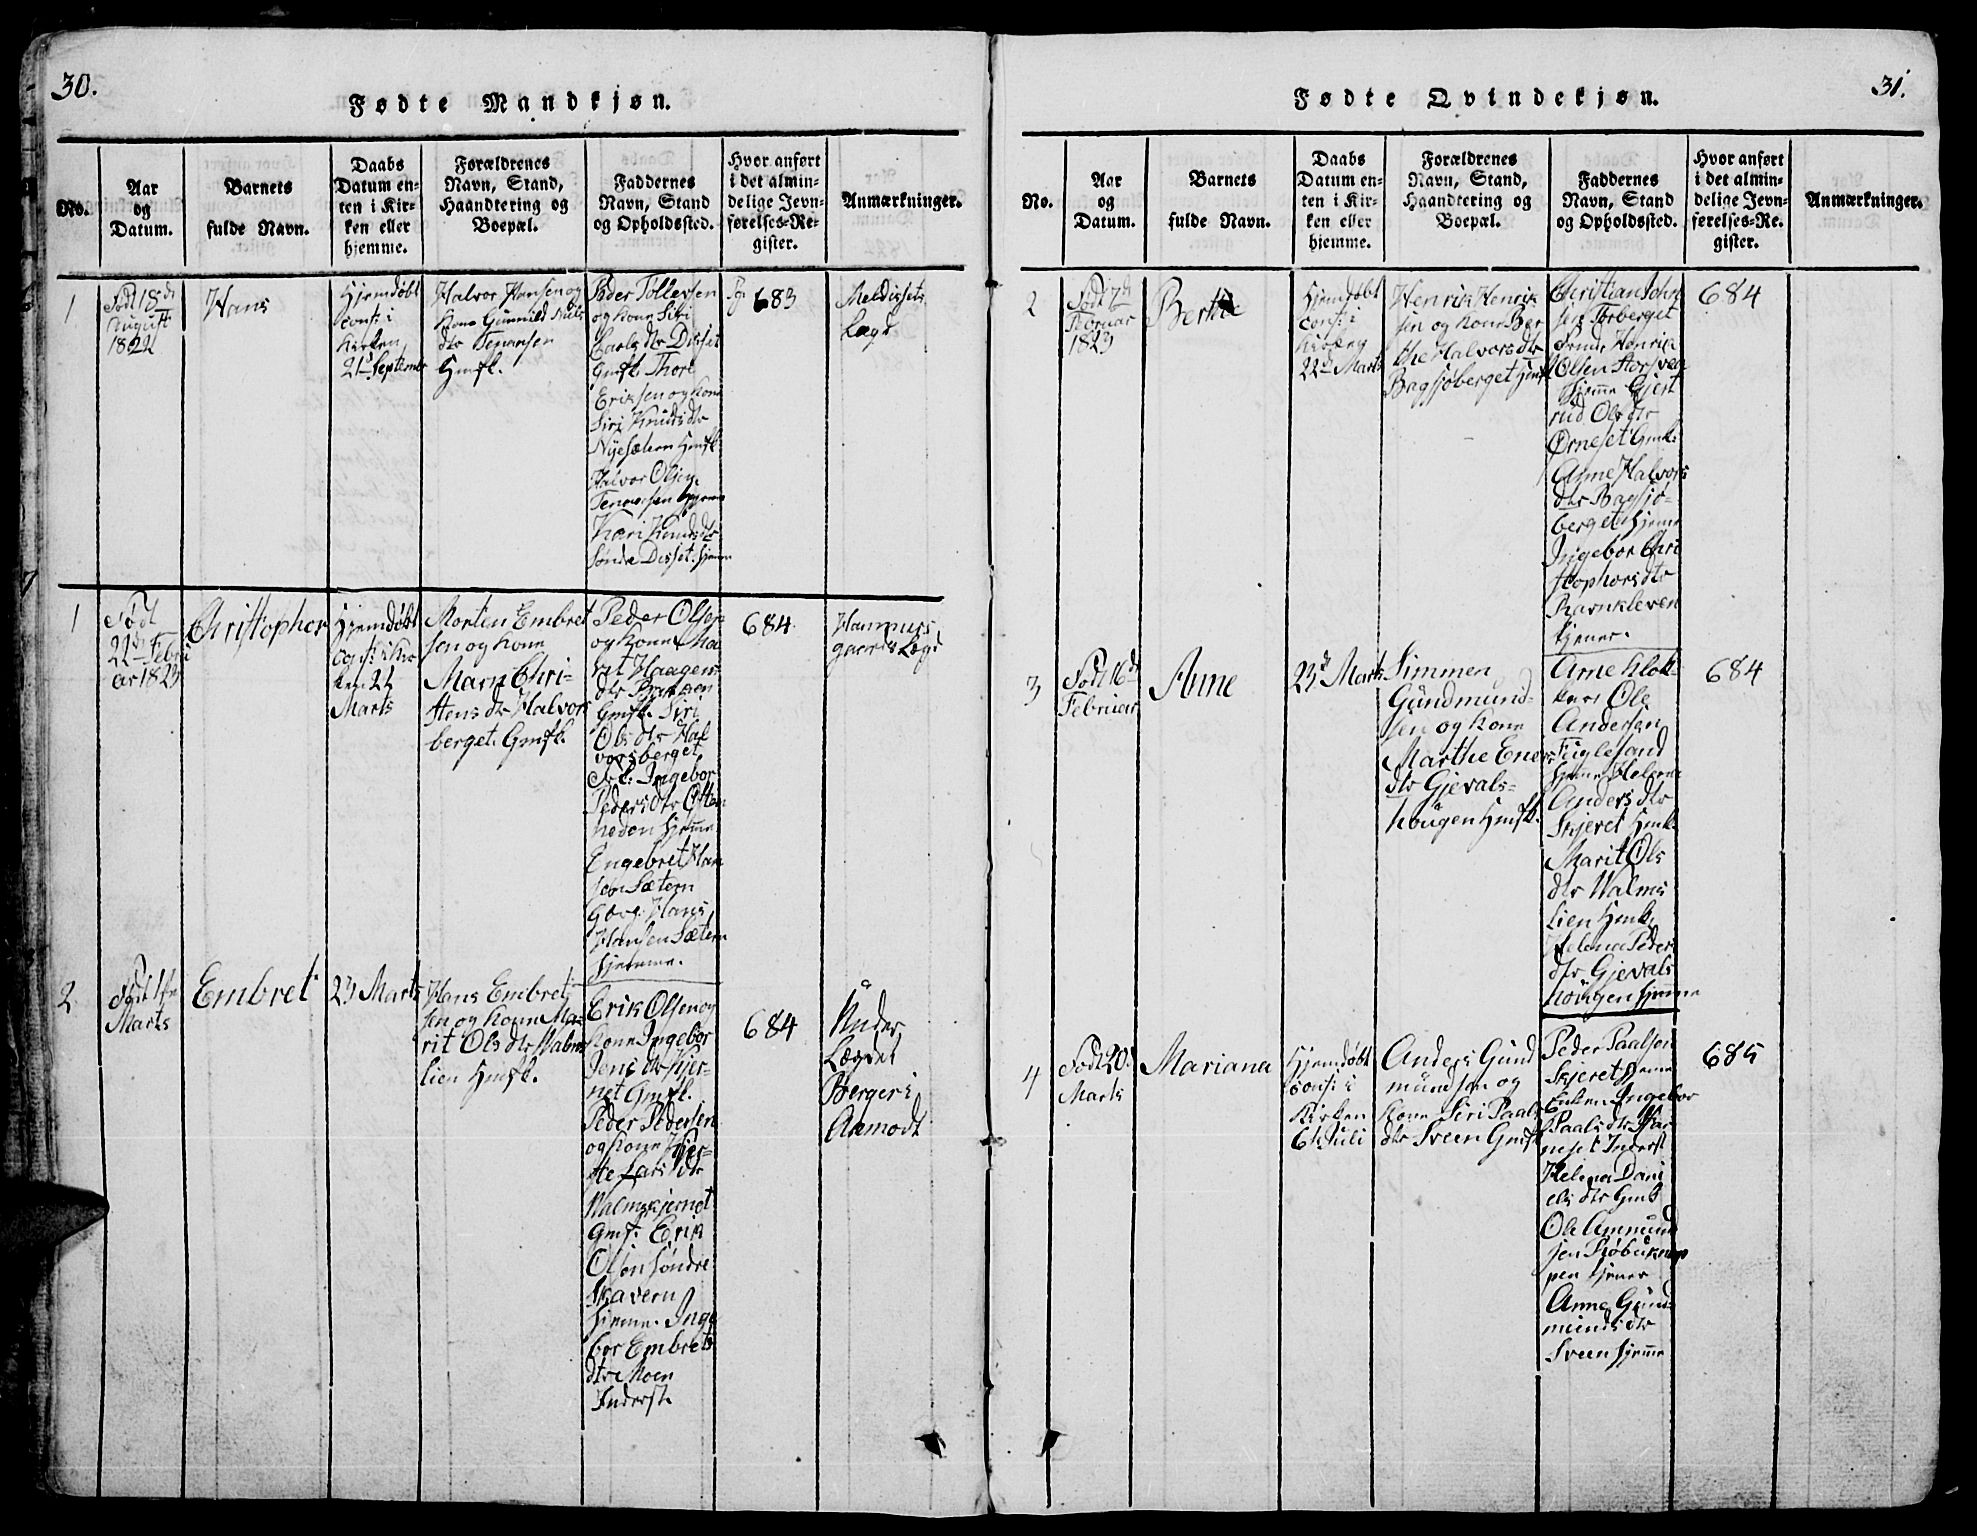 30.
Fødte Mandkjøn.
No.
Aar
og
Datum.
Barnets
fulde Navn.
Daabs
Datum en-
ten i Kir-
ken eller
hjemme.
Forældrenes
Navn, Stand,
Haandtering og
Boepæl.
Faddernes
Navn, Stand
og Opholdssted.
Hvor anført
i det almin-
delige Jevn-
førelses-Re-
gister.
Anmærkninger.
1
Født 18de
August
1822
Hans
Hjemdøbt
conf: i
Kirken
21de September
Halvor Hansen og
Kone Gunnild Niels
dtr
Gmfk.
Peder Tollevsen
og Kone Siri
Carls dtr Disset
Gmfk. Thore
Eriksen og Kone
Siri Knuds dtr
Nysætern Hmfk.
Halvor Olsen
Kari Knuds dtr
Søndre Disset hjemme
683
Meldissets
Lægd
1
Født
22de Febru
ar 1823
Christopher
Hjemdøbt
conf: i Kir
ken 22
Marts
Morten Embret
sen og Kone
Mari Chri-
stens dtr Halvors
berget. Gmfk.
Peder Olsen
og Kone Ma
rit Haagens
dtr Bratten
Gmfk. Siri
Ols dtr Hal
vorsberget
Ingebor
Peders dtr Otter
neden hjemme
Engebret Han
sen Sætern
Gbrg. Hans
Hansen Sætern
hjemme.
684
Hammers
gaards Lægd
2.
Født
Marts
Embret
23 Marts
Hans Embret
sen og Kone Ma-
rit Ols dtr Malms
lien Hmfk.
Erik Olsen og
Kone Ingebor
Jens dtr Kjer-
net Gmfk.
Peder Pedersen
og Kone Kjer-
ste Lars dtr
Malmskjernet
Gmf. Erik
Olsen Søndre
Skavern
hjemme. Inge
bor Embrets
dtr Moen
Inderst.
684
Under
Lægdet
Berger i
Aamodt
31.
Fødte Qvindekjøn.
No.
Aar
og
Datum.
Barnets
fulde Navn.
Daabs
Datum en-
ten i Kir-
ken eller
hjemme.
Forældrenes
Navn, Stand,
Haandtering og
Boepæl.
Faddernes
Navn, Stand
og Opholdssted.
Hvor anført
i det almin-
delige Jevn-
førelses-Re-
gister.
Anmærkninger.
2
Født 7de
Februar
1823
Berthe
Hjemdøbt
conf: i
Kirken
22de Marts
Henrik Henrik
sen og Kone Ber
the Halvors dtr
Bagsjøberget Hmfk.
Christian John
sen Torberget
Henrik
Olsen Storsveen
hjemme Gjert
rud Ols dtr
Ørneset Gmk.
Anne Halvors
dtr Bagsjø-
berget hjemme
Ingebor Chri
stophors dtr
Ravnkleven
tjener.
684
3
Født 16de
Februar
Anne
23de Marts
Simmen
Gundmund-
sen og Kone
Marthe Eners
dtr Gjevals-
hougen Hmfk.
Arne Klok-
ker Ole
Andersen
Fuglesand
hjemme Helene
Anders dtr
Skjeret Hmk.
Marit Ols
dtr Malms
lien Hmk.
Helena Peders
dtr Gjevals
hougen hjemme
684
4
Født 20de
Marts
Mariana
Hjemdøbt
conf: i
Kirken
6te Juli
Anders Gund
mundsen og
Kone Siri Paals
dtr Sveen Gmfk
Peder Paalsen
Skjeret hjemme
Enken Ingebor
Paals dtr
Inderst
Helena Dani
els dtr Gmk
Ole Ammund
sen
pen tjener
Anne Gund-
munds dtr
Sveen hjemme
685